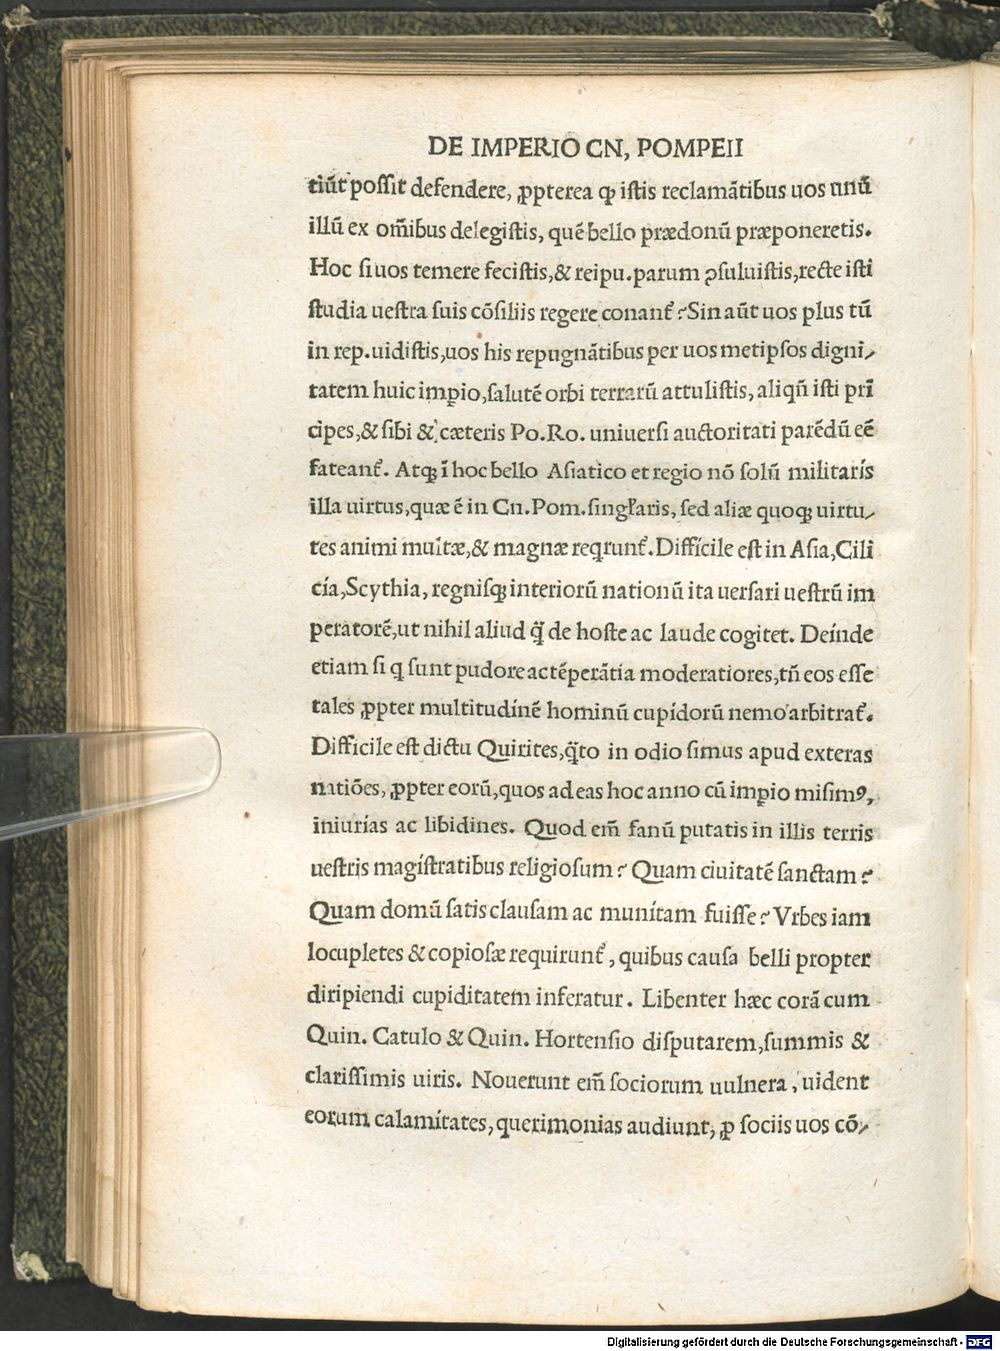 DE IMPERIO CN, POMPEII
tiũt possit defendere, ꝓpterea ꝙ istis reclamãtibus uos unũ
illũ ex om̃ibus delegistis, quẽ bello prædonũ præponeretis.
Hoc si uos temere fecistis,& reipu.parum ꝯsuluistis,recte isti
studia uestra suis cõsiliis regere conant᷑?Sin aũt uos plus tũ
in rep.uidistis,uos his repugnãtibus per uos metipsos digni/
tatem huic imꝑio,salutẽ orbi terrarũ attulistis, aliqñ isti prĩ
cipes,& sibi & cæteris Po.Ro. uniuersi auctoritati parẽdũ eẽ
fateant᷑. Atqꝫ ĩ hoc bello Asiatico et regio nõ solũ militaris
illa uirtus,quæ ẽ in Cn.Pom.singl̓aris, sed aliæ quoqꝫ uirtu/
tes animi multæ,& magnæ reqrunt᷑.Difficile est in Asia,Cili
cia,Scythia, regnisqꝫ interiorũ nationũ ita uersari uestrũ im
peratorẽ,ut nihil aliud q̃ de hoste ac laude cogitet. Deinde
etiam si q sunt pudore ac tẽperãtia moderatiores,tñ eos esse
tales ꝓpter multitudinẽ hominũ cupidorũ nemo arbitrat᷑.
Difficile est dictu Quirites,q̃to in odio simus apud exteras
natiões, ꝓpter eorũ,quos ad eas hoc anno cũ imꝑio misimꝰ,
iniurias ac libidines. Quod em̃ fanũ putatis in illis terris
uestris magistratibus religiosum? Quam ciuitatẽ sanctam?
Quam domũ satis clausam ac munitam fuisse? Vrbes iam
locupletes & copiosæ requirunt᷑, quibus causa belli propter
diripiendi cupiditatem inferatur. Libenter hæc corã cum
Quin. Catulo & Quin. Hortensio disputarem,summis &
clarissimis uiris. Nouerunt em̃ sociorum uulnera, uident
eorum calamitates, querimonias audiunt, ꝓ sociis uos cõ/
Digitalisierung gefördert durch die Deutsche Forschungsgemeinschaft - DFG